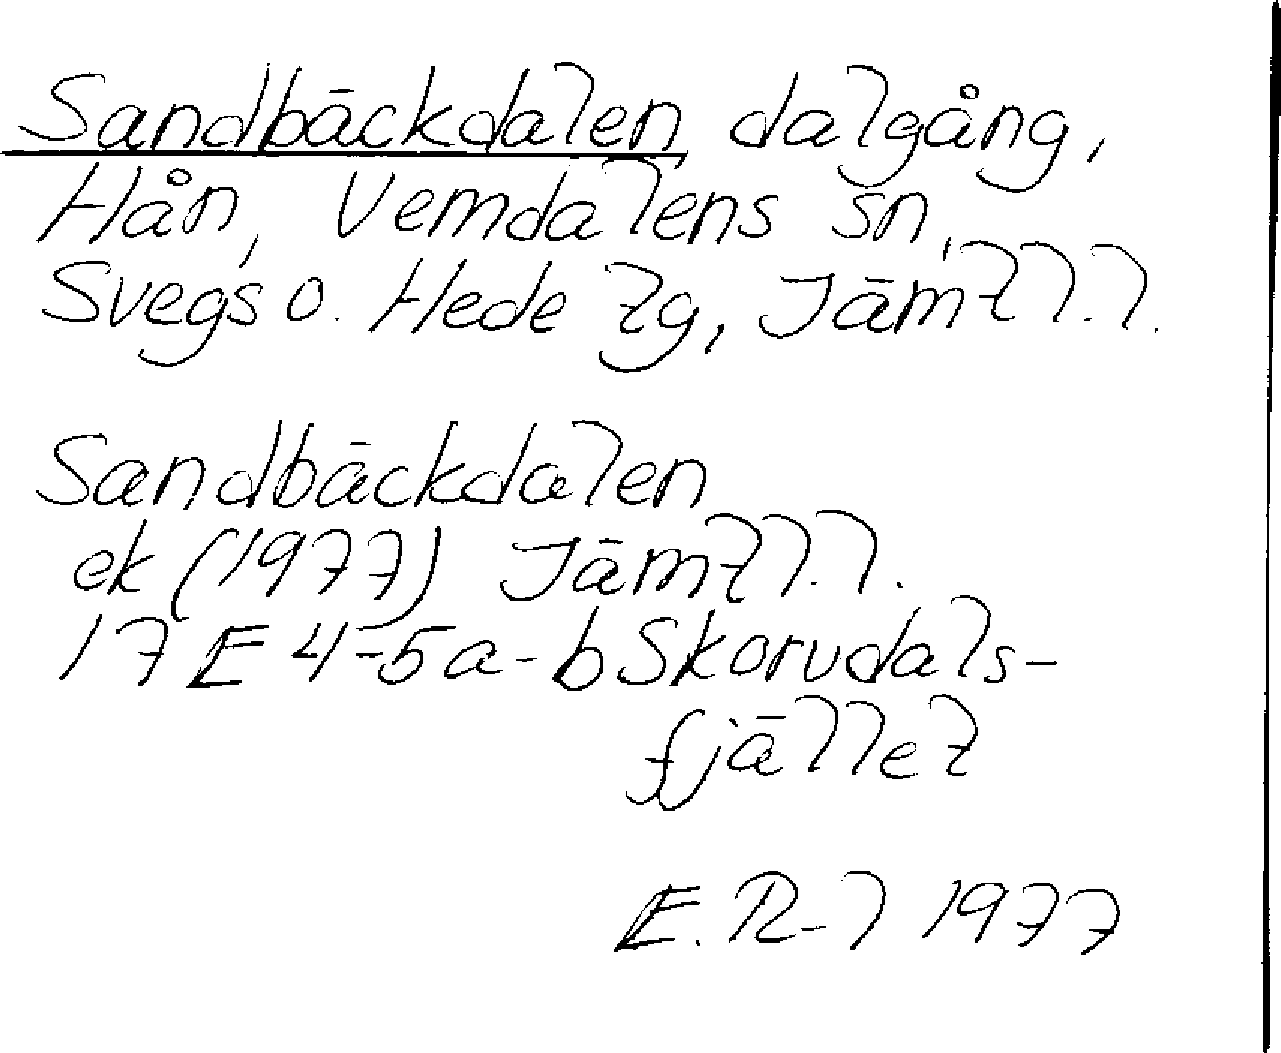 Sandbäckdalen dalgång,
Hån, Vemdalens sn,
Svegs o. Hede tg, Jämtl.l.
Sandbäckdalen
ek (1977) Jämtl.l.
17 E 4-5a-b Skorvdals-
fjället
E. R-l 1977